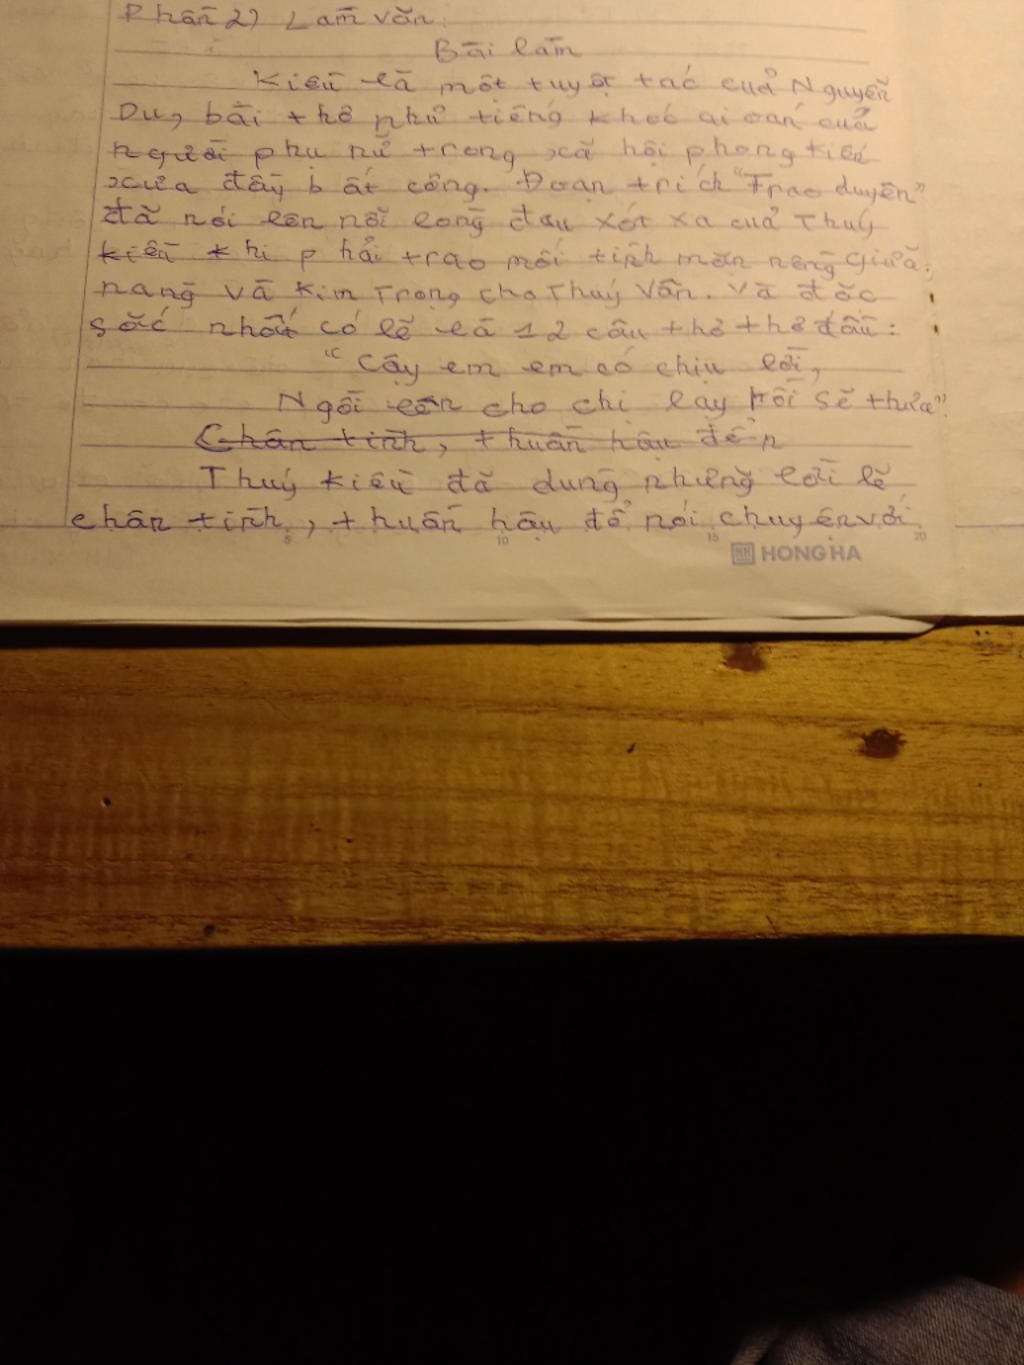 Phần 2) Làm văn.
Bài làm
Kiều là một tuyệt tác của Nguyễn
Du, bài thơ như tiếng khóc ai oán của
người phụ nữ trong xã hội phong kiến
xưa đầy bất công. Đoạn trích "Trao duyên"
đã nói lên nỗi lòng đau xót xa của Thuý
kiều khi phải trao mối tình mặn nồng giữa
nàng và Kim Trọng cho Thuý Vân. Và đặc
sắc nhất có lẽ là 12 câu thơ thơ đầu:
"Cậy em em có chịu lời,
Ngồi lên cho chị lạy rồi sẽ thưa".
Chân tình, thuần hậu để n
Thuý kiều đã dùng những lời lẽ
chân tình, thuần hậu để nói chuyện với
5 10 15 20
HH HONG HA